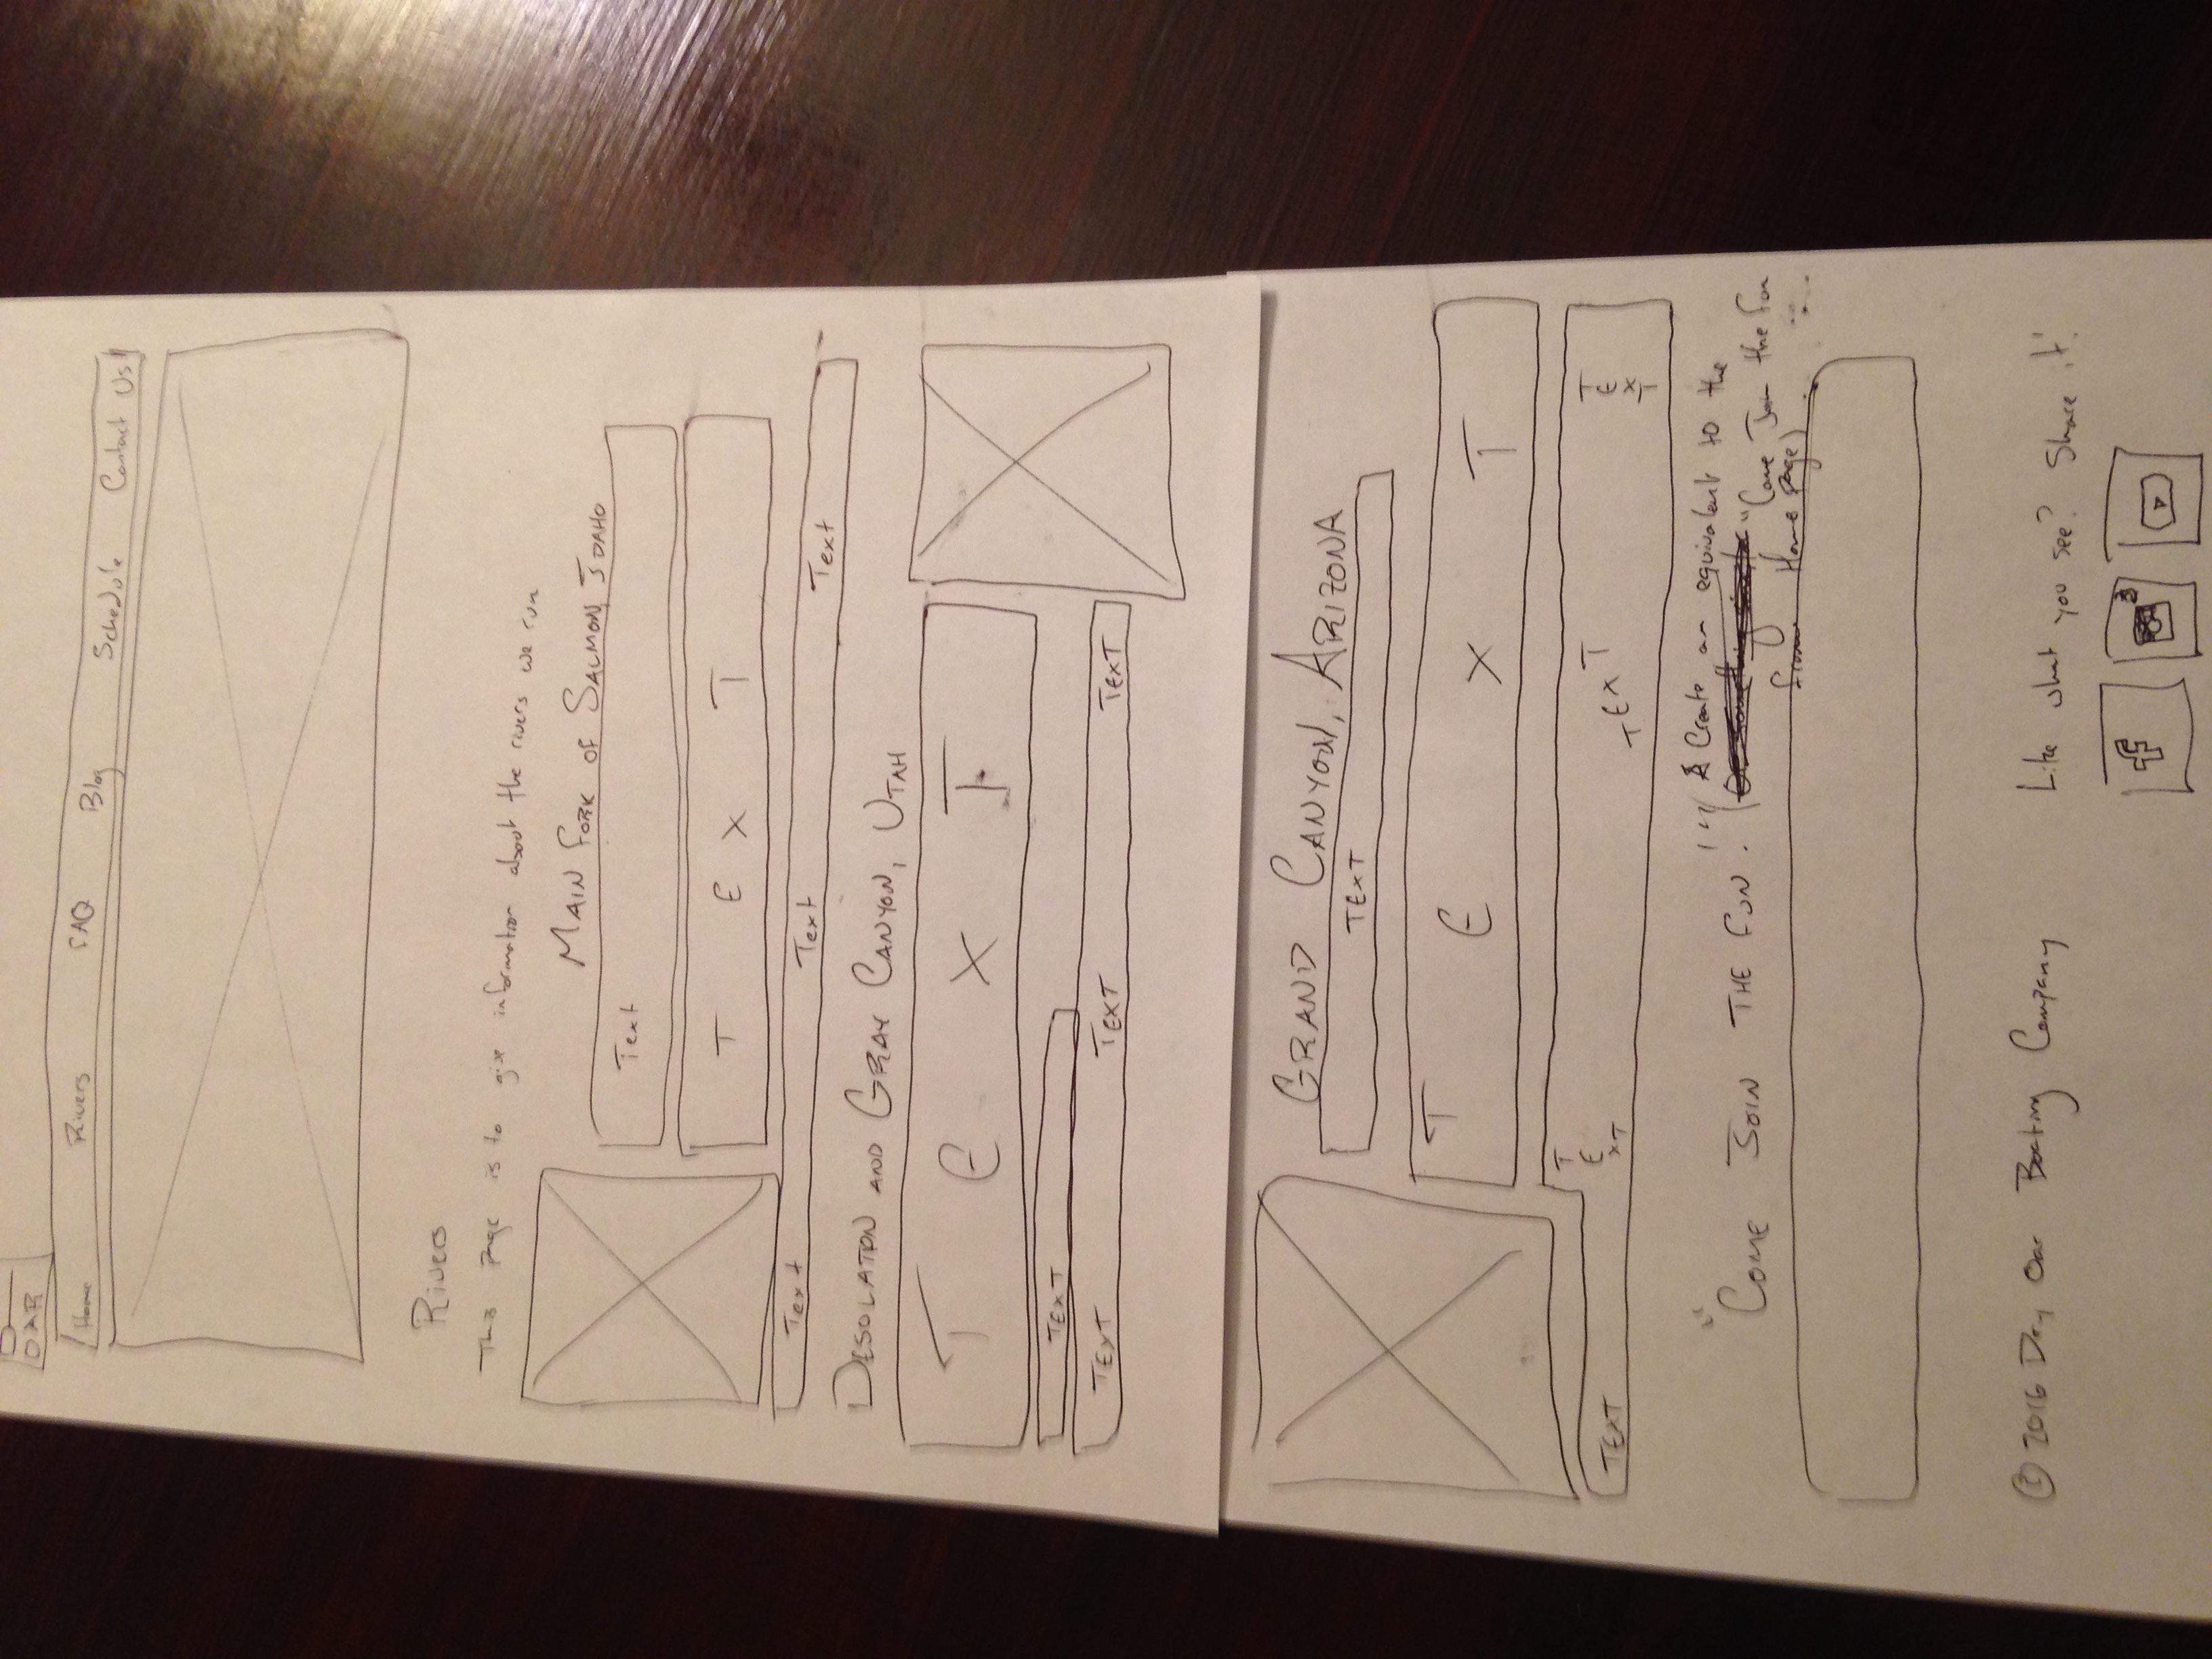 OAR
Home Rivers FAQ Blog Schedule Contact Us
Rivers
This page is to give information about the rivers we run
MAIN FORK OF SALMON, IDAHO
Text
TEXT
Text Text Text
DESOLATION AND GRAY CANYON, UTAH
TEXT
TEXT
TEXT TEXT TEXT
GRAND CANYON, ARIZONA
TEXT
TEXT
TEXT TEXT TEXT TEXT
"COME JOIN THE FUN!" (Create an equivalent to the
"Come Join the fun
from Home page)
© 2016 Dry Oar Boating Company
Like what you see? Share it!
f